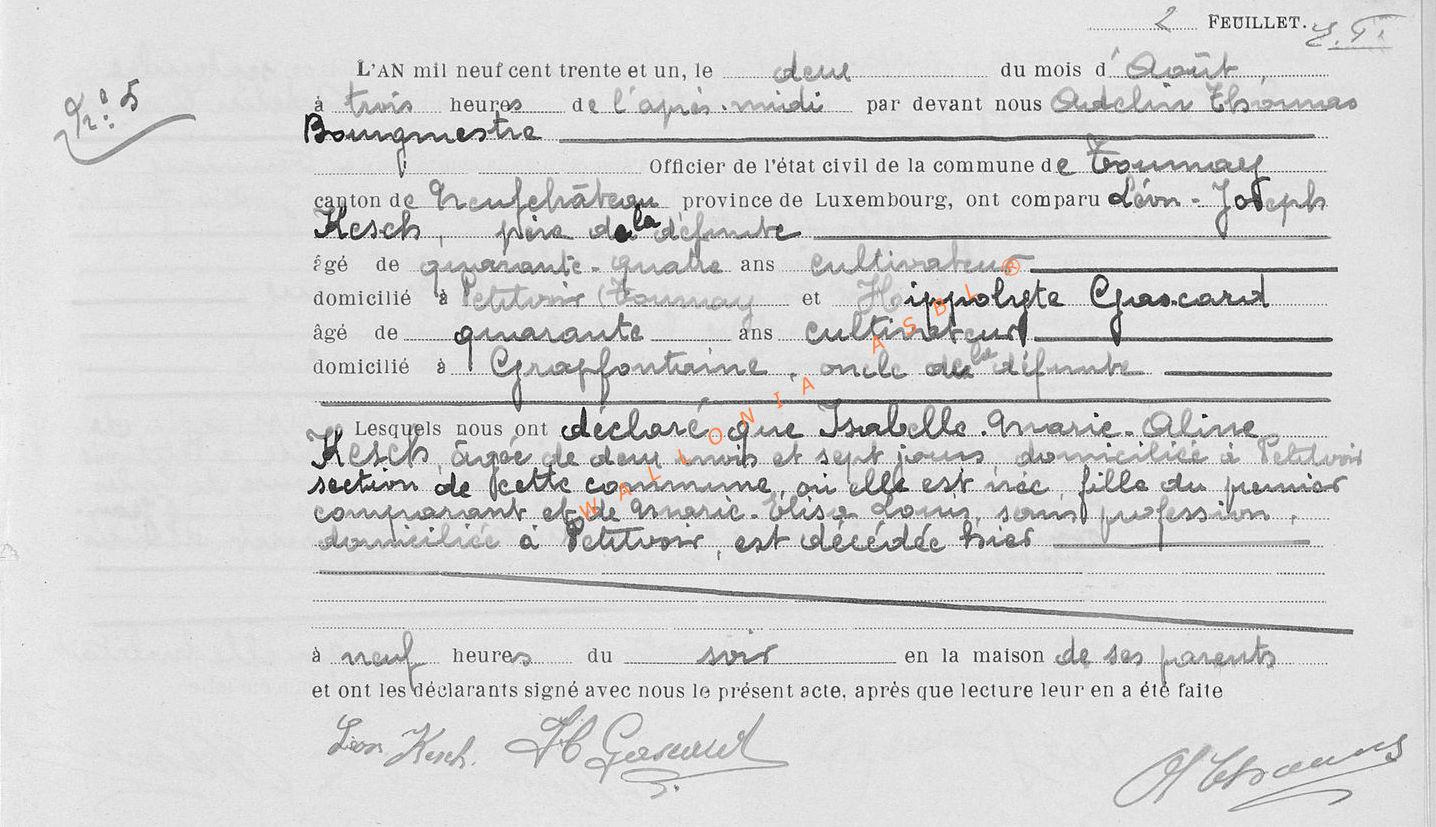 2 FEUILLET.
Nº 5
L'AN mil neuf cent trente et un, le deux du mois d'Août,
à trois heures de l'après-midi par devant nous Adelin Thomas
Bourgmestre
Officier de l'état civil de la commune de Tournay
canton de Neufchâteau province de Luxembourg, ont comparu Léon-Joseph
Kesch, père de la défunte
âgé de quarante-quatre ans cultivateur
domicilié à Petitvoir (Tournay et Hippolyte Gascard
âgé de quarante ans cultivateur
domicilié à Grapfontaine, oncle de la défunte
Lesquels nous ont déclaré que Isabelle-Marie-Aline
Kesch, âgée de deux mois et sept jours, domiciliée à Petitvoir
section de cette commune, où elle est née, fille du premier
comparant et de Marie-Elisa Louis, sans profession,
domiciliée à Petitvoir, est décédée hier
à neuf heures du soir en la maison de ses parents
et ont les déclarants signé avec nous le présent acte, après que lecture leur en a été faite
Léon Kesch. H Gascard
A Thomas
WALLONIA ASBL ®